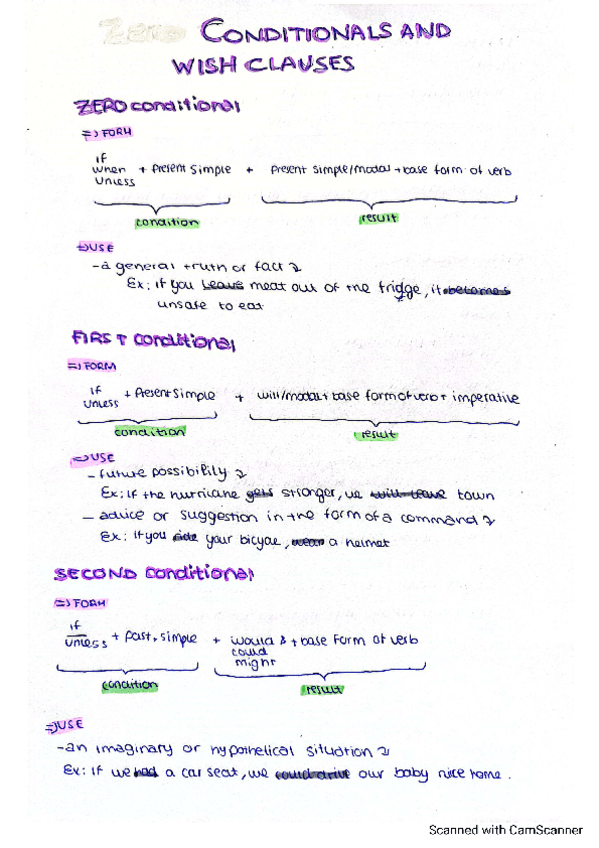 Zero CONDITIONALS AND
WISH CLAUSES
ZERO conditional
=> FORM
if
when + Present Simple + Present simple/modal + base form of verb
unless
condition result
=> USE
- a general truth or fact
Ex: if you leave meat out of the fridge, it becomes
unsafe to eat
FIRST conditional
=> FORM
if + Present Simple + will/modal + base form of verb + imperative
unless
condition result
=> USE
- future possibility
Ex: If the hurricane gets stronger, we will leave town
- advice or suggestion in the form of a command
Ex: If you ride your bicycle, wear a helmet
SECOND conditional
=> FORM
if
unless + past simple + would + base form of verb
could
might
condition result
=> USE
- an imaginary or hypothetical situation
Ex: If we had a car seat, we could drive our baby nice home.
Scanned with CamScanner